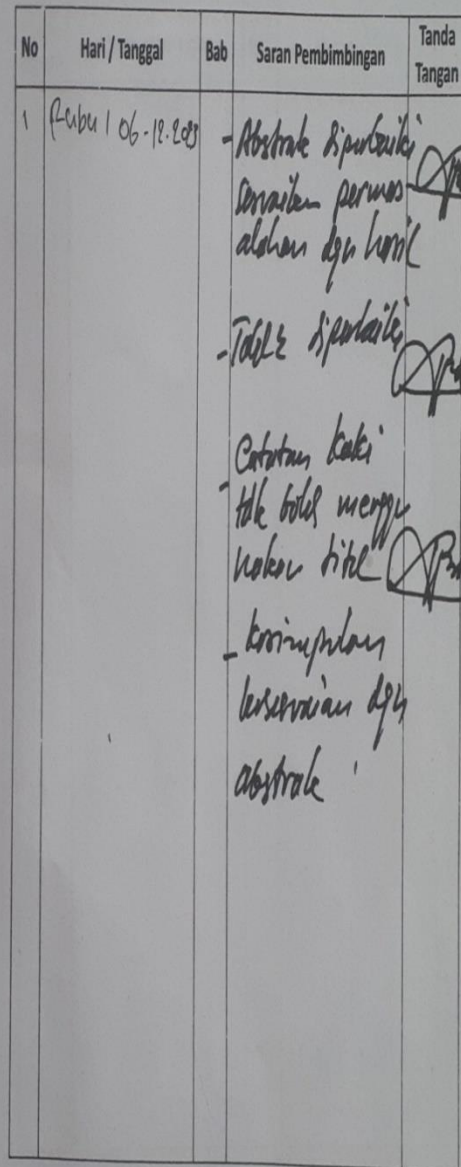 No Hari / Tanggal Bab Saran Pembimbingan Tanda
Tangan
1 Rabu / 06-12-2023 - Abstrak diperbaiki
sesuaikan permas-
alahan dgn hasil
- Tabel diperbaiki
Catatan kaki
- tdk boleh menggu
nakan titel
- kesimpulan
kesesuaian dgn
abstrak